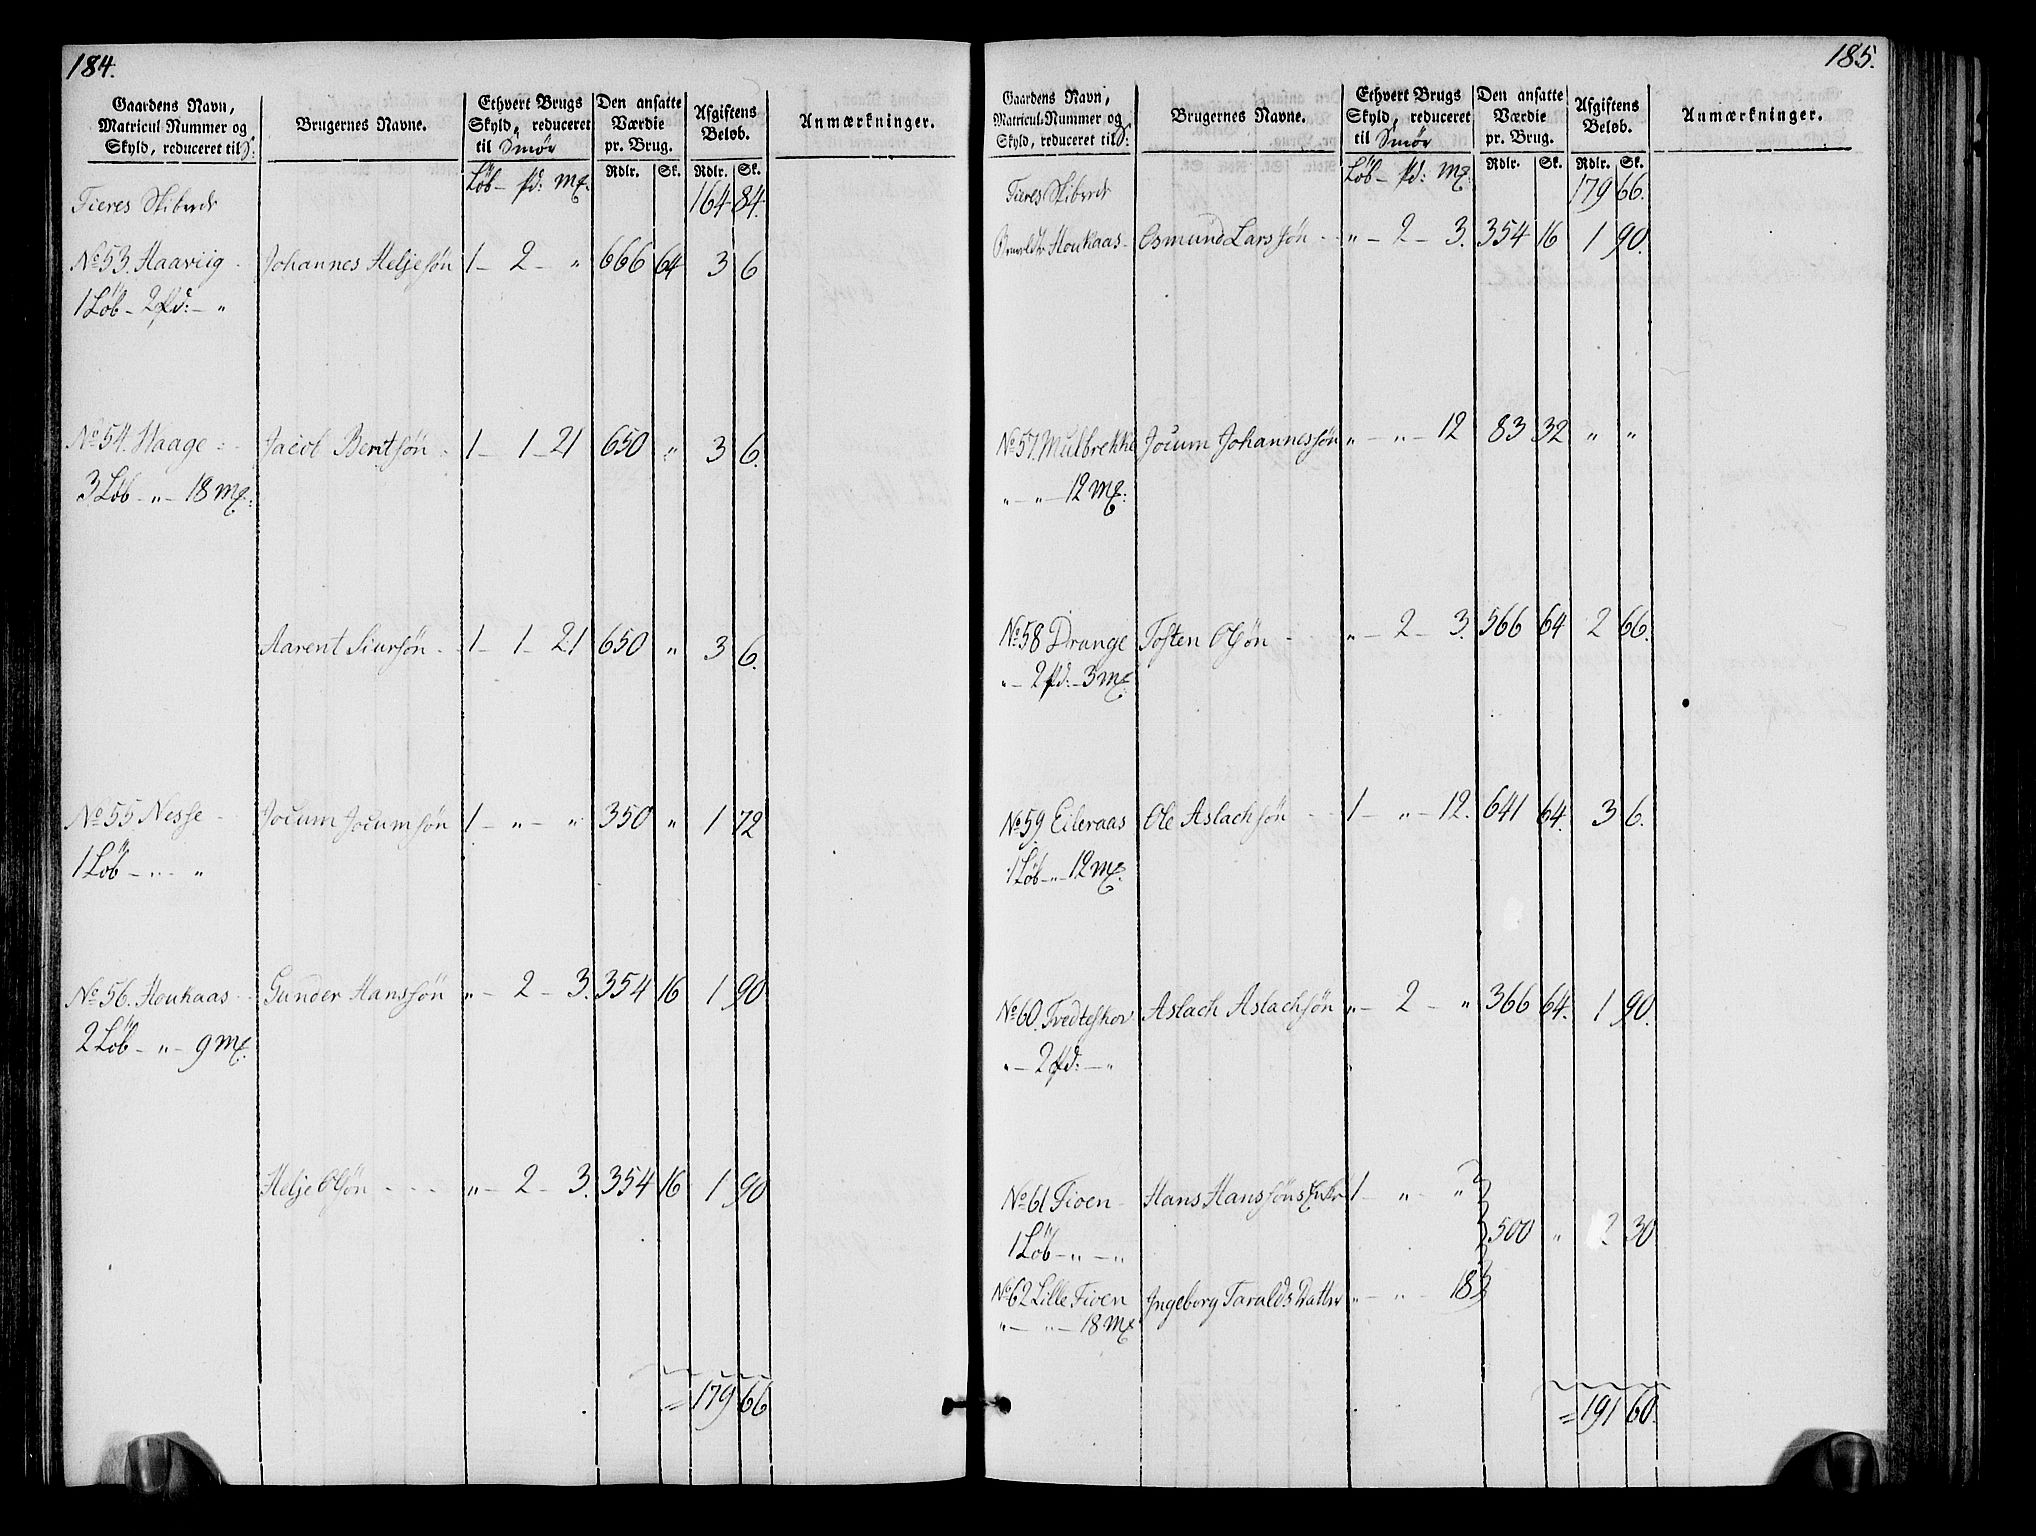 184.
Gaardens Navn, Matricul Nummer og Skyld, reduceret til S: | Brugernes Navne. | Ethvert Brugs Skyld, reduceret til Smör | Den ansatte Værdie pr. Brug. | Afgiftens Beløb. | Anmærkninger.
Löb - pd: - Mk: | Rdlr. | Sk. | Rdlr. | Sk.
Fieres Skibrede | 164 | 84.
No 53. Haaviig - | Johannes Heljesøn | 1 - 2 - " | 666 | 64 | 3 | 6
1 Löb - 2 pd: - "
No 54. Haage - | Jacob Bentsøn - | 1 - 1 - 21 | 650 | " | 3 | 6.
3 Löb - " - 18 Mk:
Aarent Siursøn - | 1 - 1 - 21 | 650 | " | 3 | 6.
No 55 Nesse - | Jocum Jocumsøn | 1 - " - " | 350 | " | 1 | 72
1 Löb - " - "
No 56. Houkaas - | Gunder Hanssøn | " - 2 - 3. | 354 | 16 | 1 | 90
2 Löb - " - 9 Mk:
Helje Olsøn - - - | " - 2 - 3. | 354 | 16 | 1 | 90
= 179 | 66
185.
Gaardens Navn, Matricul-Nummer og Skyld, reduceret til S: | Brugernes Navne. | Ethvert Brugs Skyld, reduceret til Smör | Den ansatte Værdie pr. Brug. | Afgiftens Beløb. | Anmærkninger.
Löb - pd: Mk: | Rdlr. | Sk. | Rdlr. | Sk.
Fieres Skibrede | 179 | 66.
Houkaas - | Osmund Larssøn - | " - 2 - 3. | 354 | 16 | 1 | 90.
No 57. Mulbrekke | Jocum Johannessøn | " - " - 12 | 83 | 32 | " | "
" - " - 12 Mk:
No 58 Drange | Tosten Olsøn - | " - 2 - 3. | 566 | 64 | 2 | 66.
" - 2 pd: - 3 Mk:
No 59. Eileraas | Ole Aslachsøn - | 1 - " - 12. | 641 | 64. | 3 | 6.
1 Löb - " - 12 Mk:
No 60. Tredteskov | Aslach Aslachsøn | " - 2 - " | 366 | 64. | 1 | 90.
" - 2 pd: - "
No 61 Fioen - | Hans Hanssøns Enke | 1 - " - "
1 Löb - " - " | 500 | " | 2. | 30
No 62 Lille Fioen | Ingeborg Taralds Datter | " - " - 18
" - " - 18 Mk
= 191 | 60.